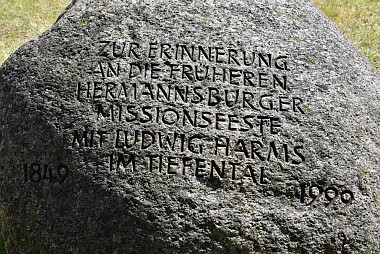 ZUR ERINNERUNG
AN DIE FRÜHEREN
HERMANNSBURGER
MISSIONSFESTE
MIT LUDWIG HARMS
IM TIEFENTAL
1849
1990